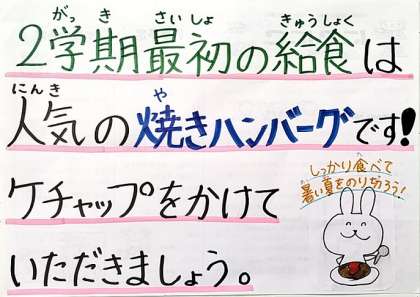 がっ き さいしょ きゅうしょく
2学期最初の給食は
にんき や
人気の焼きハンバーグです!
しっかり食べて
暑い夏をのり切ろう!
ケチャップをかけて
いただきましょう。